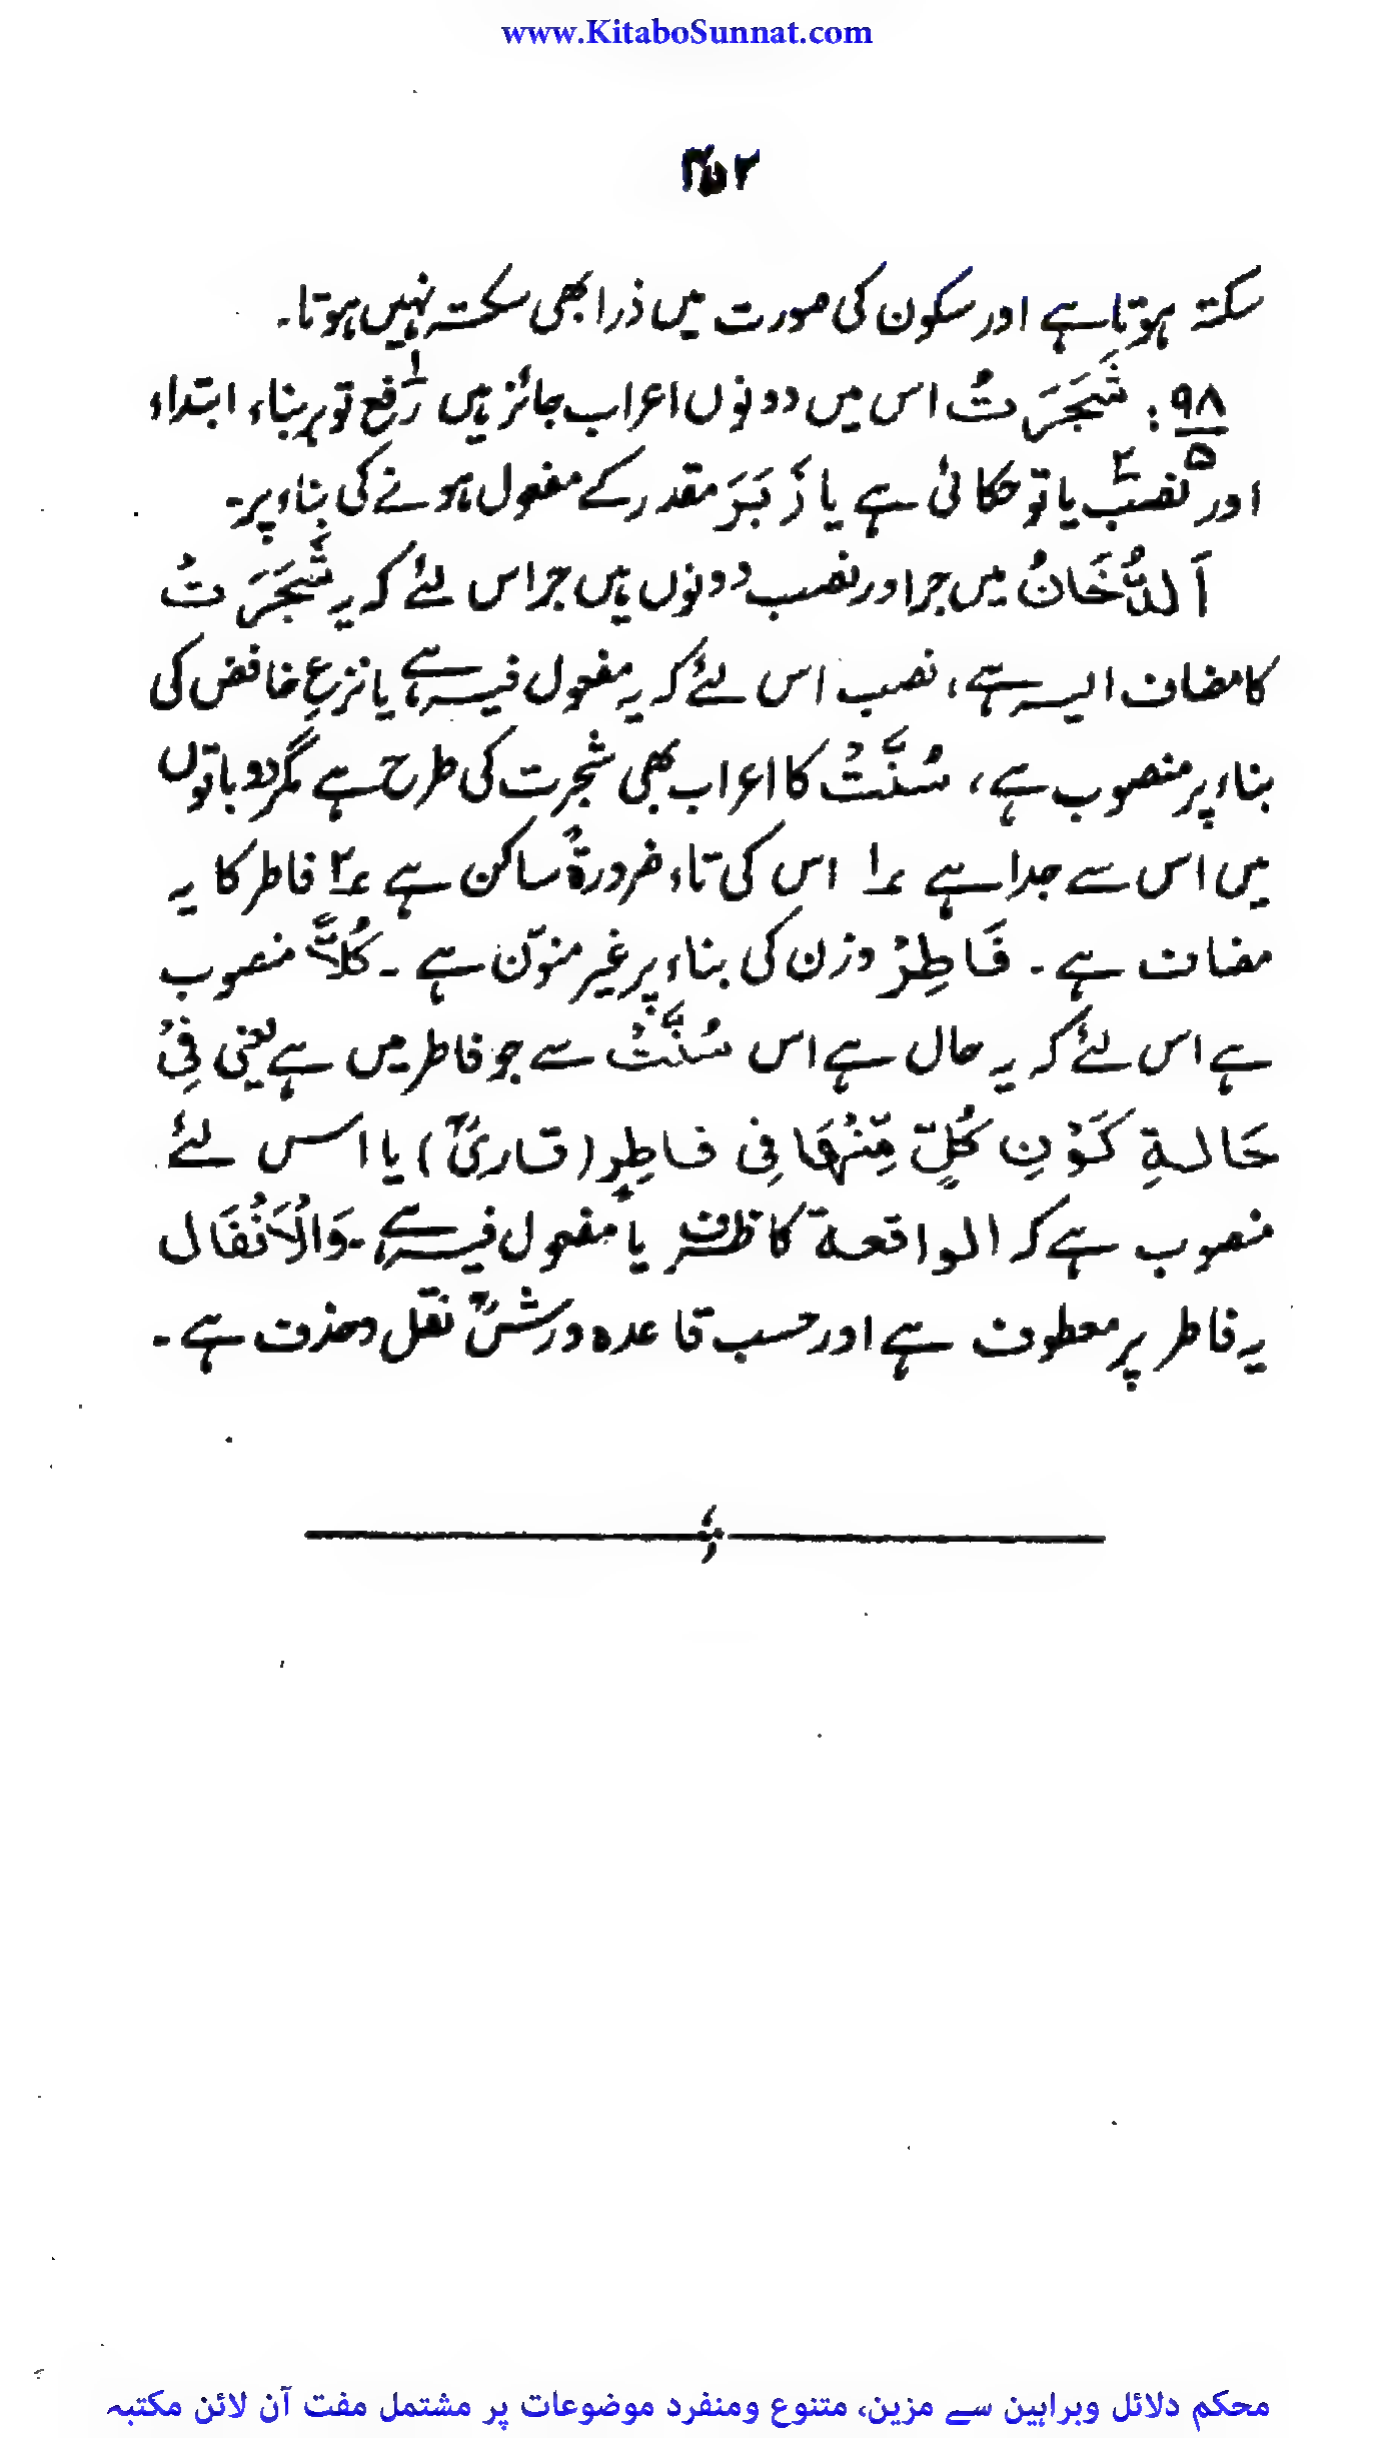 www.KitaboSunnat.com
۳۵۲
سکتہ ہوتا ہے اور سکون کی صورت میں ذرا بھی سکتہ نہیں ہوتا۔
۹۸/۵ : شَجَرَتُ اس میں دونوں اعراب جائز ہیں ۱؎ رفع تو بربناء ابتداء
اور ۲؎ نصب یا تو حکائی ہے یا زَبَرَ مقدر کے مفعول ہونے کی بناء پر۔
اَلدُّخَانُ میں جر اور نصب دونوں ہیں جر اس لئے کہ یہ شَجَرَتُ
کا مضاف الیہ ہے، نصب اس لئے کہ یہ مفعول فیہ ہے یا نزعِ خافض کی
بناء پر منصوب ہے، سُنَّتُ کا اعراب بھی شجرت کی طرح ہے مگر دو باتوں
میں اس سے جدا ہے ۱؎ اس کی تاء ضرورةً ساکن ہے ۲؎ فاطر کا یہ
مضاف ہے۔ فَاطِرْ وزن کی بناء پر غیر منوّن ہے۔ کُلًّا منصوب
ہے اس لئے کہ یہ حال ہے اس سُنَّتُ سے جو فاطر میں ہے یعنی فِیْ
حَالةِ کَوْنِ کُلٍّ مِّنْهَا فِی فاطِرٍ (قاریؒ) یا اس لئے
منصوب ہے کہ الواقعة کا ظرف یا مفعول فیہ ہے۔ وَالْاَنْفَال
یہ فاطر پر معطوف ہے اور حسب قاعدہ ورشؒ نقل وحذف ہے۔
محکم دلائل وبراہین سے مزین، متنوع ومنفرد موضوعات پر مشتمل مفت آن لائن مکتبہ